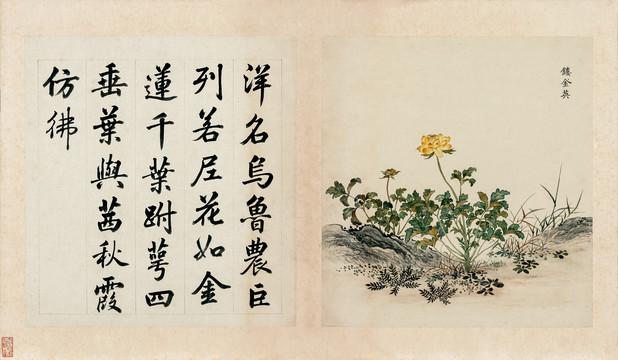 鏤金英
洋名烏魯農巨
列若尼花如金
蓮千葉跗萼四
垂葉與茜秋霞
仿彿